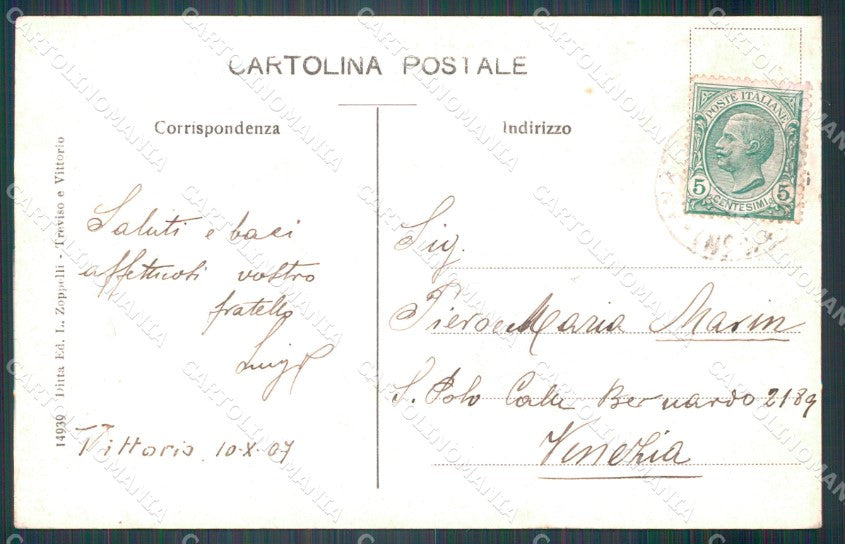 CARTOLINA POSTALE
Corrispondenza
Indirizzo
POSTE ITALIANE
5 5
CENTESIMI
Saluti e baci
affettuosi vostro
fratello
Luigi
Vittorio 10-X-07
Sig.
Piero e Maria Marin
S. Polo Calle Bernardo 2189
Venezia
14939 Ditta Ed. L. Zoppelli - Treviso e Vittorio
CARTOLINOMANIA